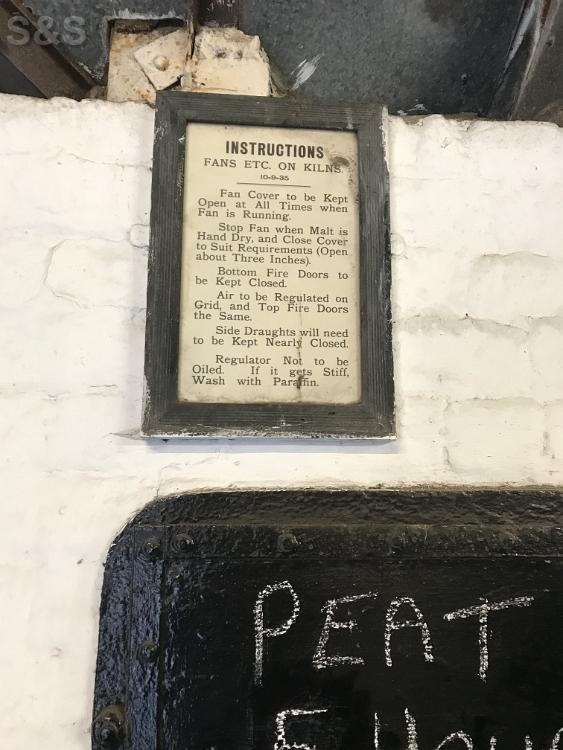 S&S
INSTRUCTIONS
FANS ETC. ON KILNS.
10-9-35
Fan Cover to be Kept
Open at All Times when
Fan is Running.
Stop Fan when Malt is
Hand Dry, and Close Cover
to Suit Requirements (Open
about Three Inches).
Bottom Fire Doors to
be Kept Closed.
Air to be Regulated on
Grid, and Top Fire Doors
the Same.
Side Draughts will need
to be Kept Nearly Closed.
Regulator Not to be
Oiled. If it gets Stiff,
Wash with Paraffin.
PEAT